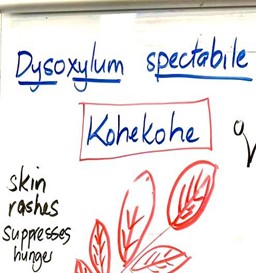 Dysoxylum spectabile
Kohekohe
skin
rashes
suppresses
hunger